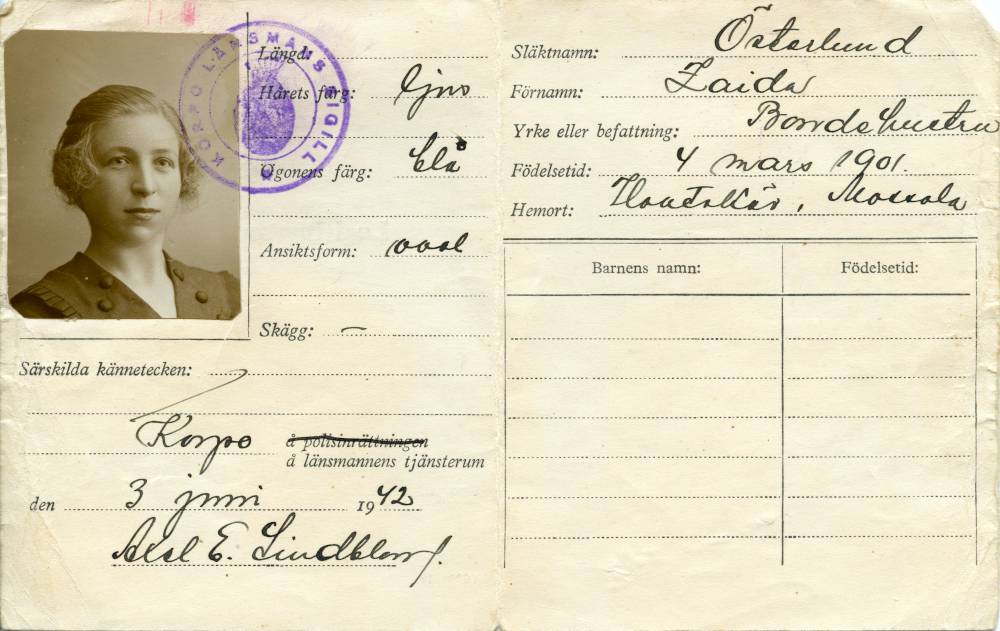 KORPO LÄNSMANS SIGILL
Längd:
Hårets färg: ljus
Ögonens färg: blå
Ansiktsform: oval
Skägg: —
Särskilda kännetecken:
Korpo å polisinrättningen
å länsmannens tjänsterum
den 3 juni 1942
Axel E. Lindblom
Släktnamn: Österlund
Förnamn: Zaida
Yrke eller befattning: Bondehustru
Födelsetid: 4 mars 1901.
Hemort: Houtskär, Mossala
Barnens namn: Födelsetid: